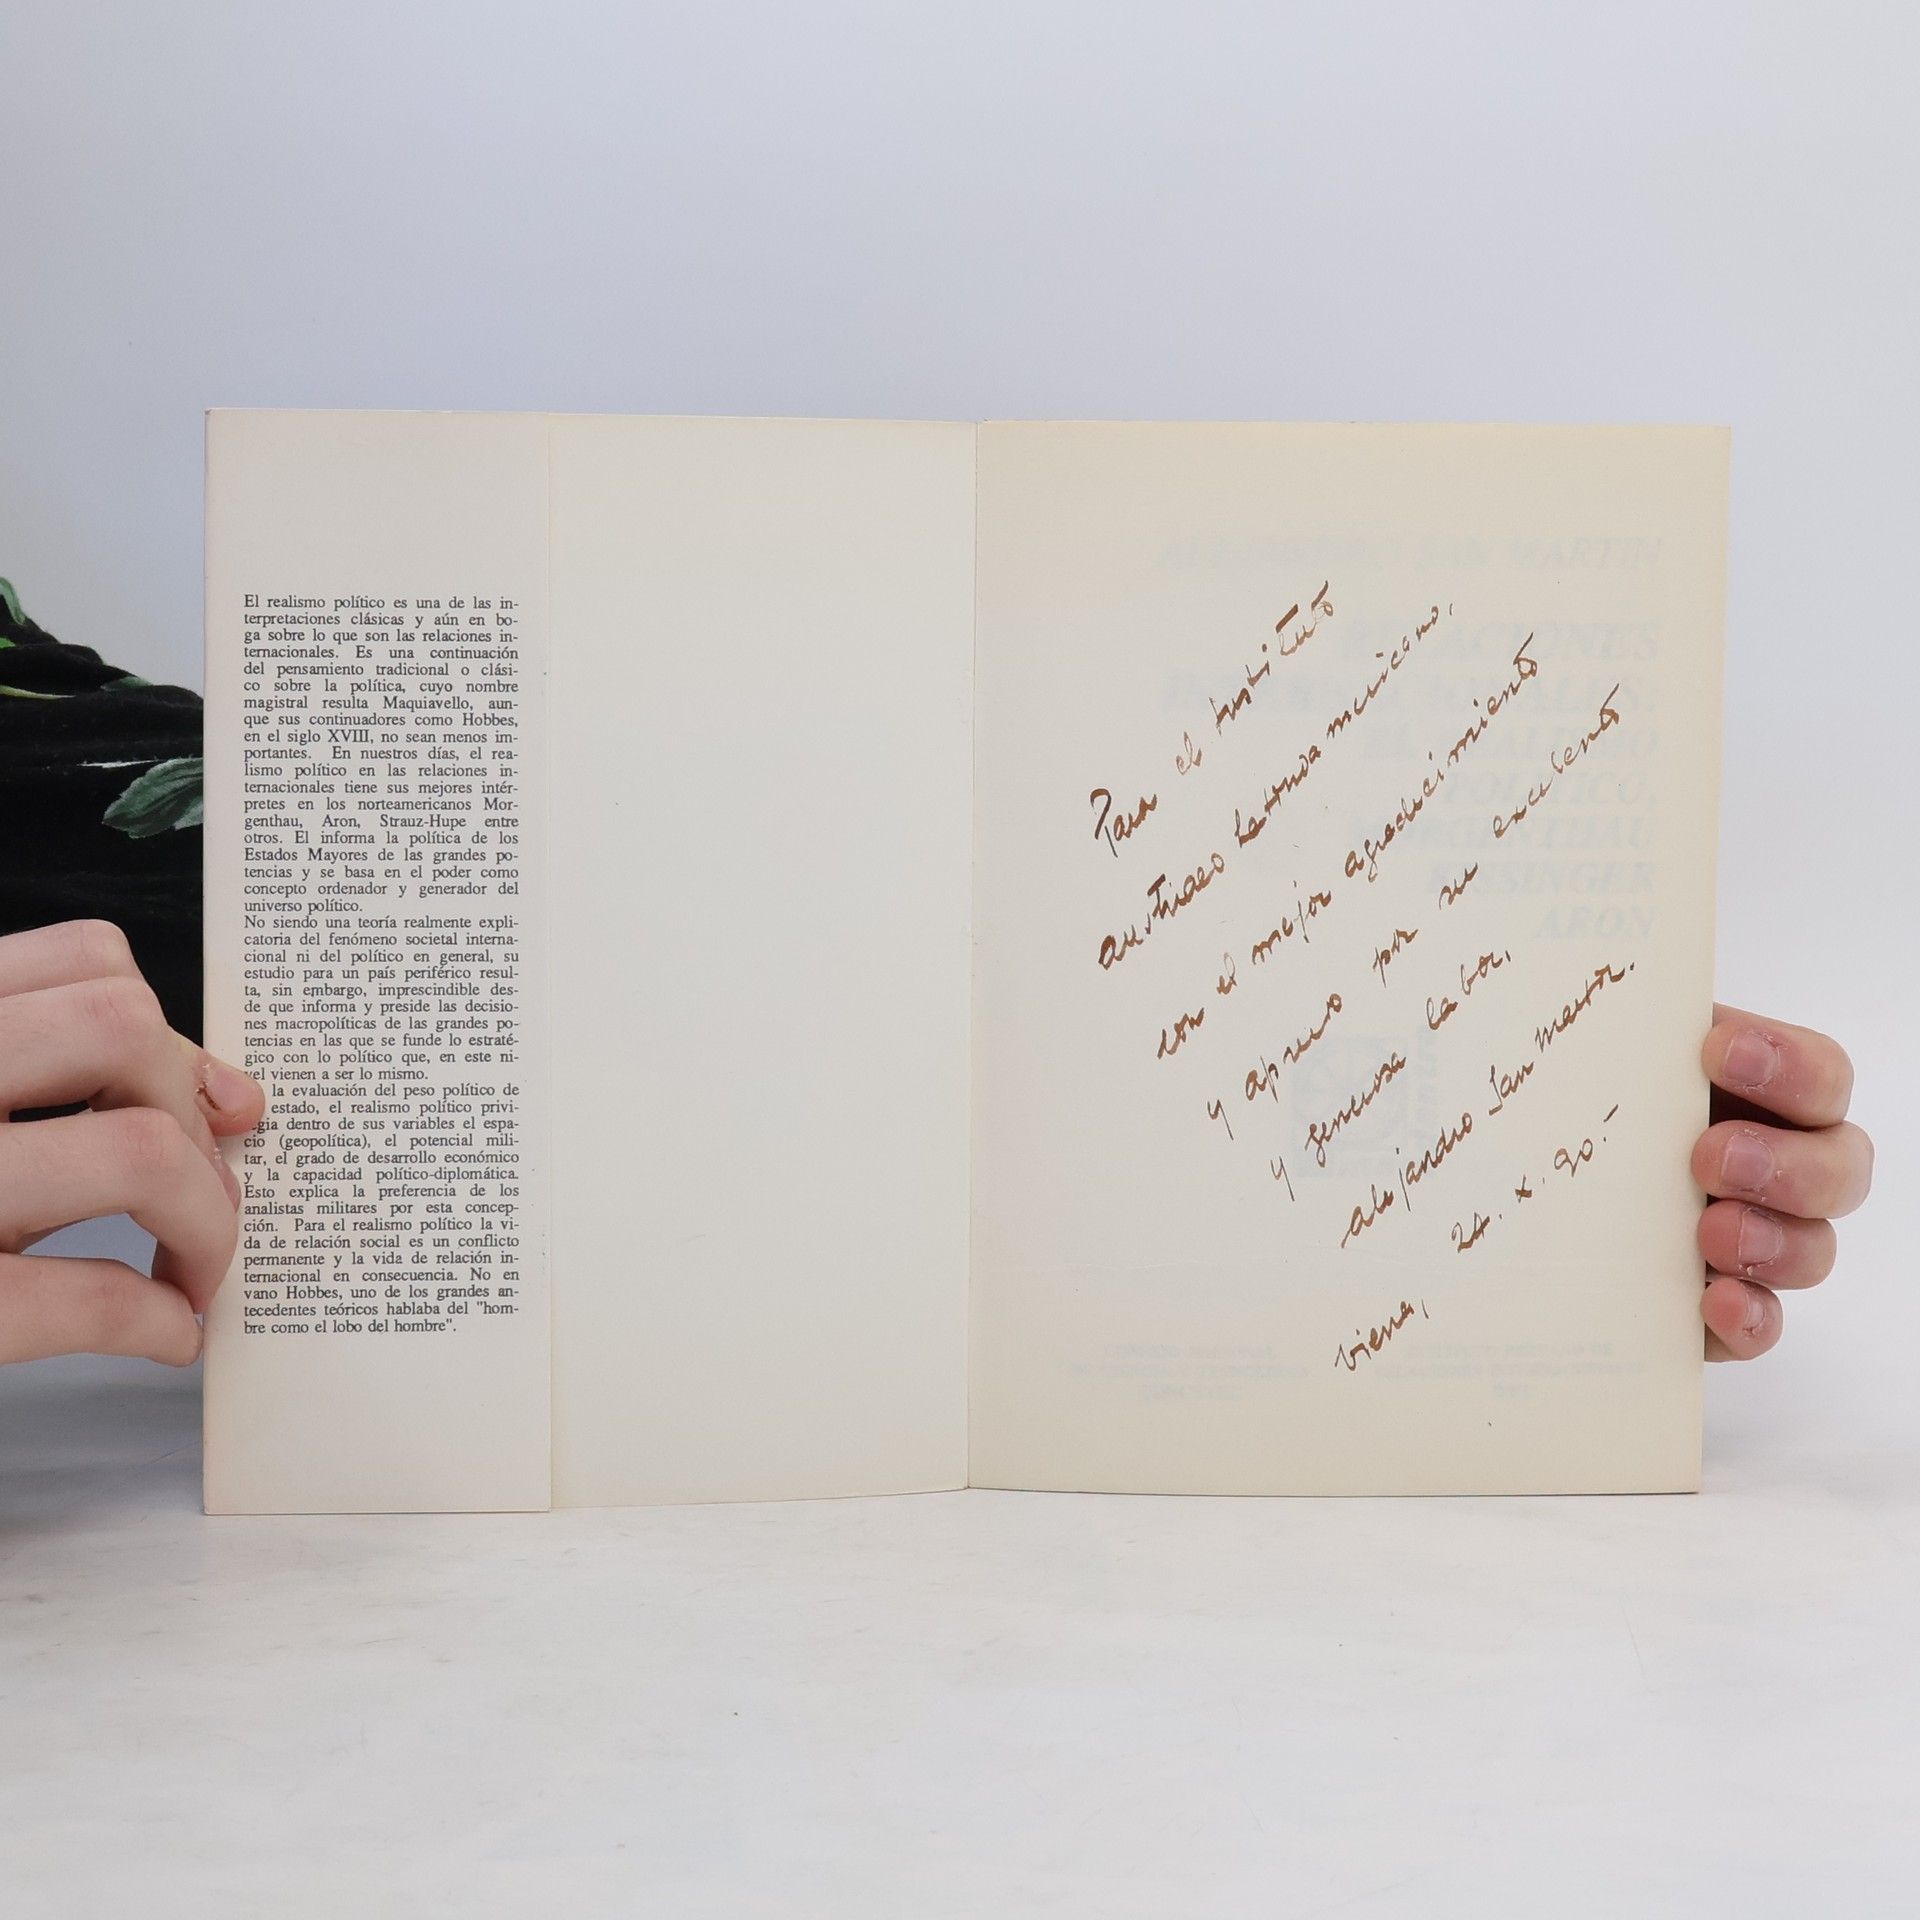 El realismo político es una de las in-
terpretaciones clásicas y aún en bo-
ga sobre lo que son las relaciones in-
ternacionales. Es una continuación
del pensamiento tradicional o clási-
co sobre la política, cuyo nombre
magistral resulta Maquiavello, aun-
que sus continuadores como Hobbes,
en el siglo XVIII, no sean menos im-
portantes. En nuestros días, el rea-
lismo político en las relaciones in-
ternacionales tiene sus mejores intér-
pretes en los norteamericanos Mor-
genthau, Aron, Strauz-Hupe entre
otros. El informa la política de los
Estados Mayores de las grandes po-
tencias y se basa en el poder como
concepto ordenador y generador del
universo político.
No siendo una teoría realmente expli-
catoria del fenómeno societal interna-
cional ni del político en general, su
estudio para un país periférico resul-
ta, sin embargo, imprescindible des-
de que informa y preside las decisio-
nes macropolíticas de las grandes po-
tencias en las que se funde lo estraté-
gico con lo político que, en este ni-
vel vienen a ser lo mismo.
la evaluación del peso político de
estado, el realismo político privi-
gia dentro de sus variables el espa-
cio (geopolítica), el potencial mili-
tar, el grado de desarrollo económico
y la capacidad político-diplomática.
Esto explica la preferencia de los
analistas militares por esta concep-
ción. Para el realismo político la vi-
da de relación social es un conflicto
permanente y la vida de relación in-
ternacional en consecuencia. No en
vano Hobbes, uno de los grandes an-
tecedentes teóricos hablaba del "hom-
bre como el lobo del hombre".
Para el Instituto
austriaco Latinoamericano,
con el mejor agradecimiento
y aprecio por su excelente
y generosa labor,
alejandro San Martín.
Viena, 24. X. 90.-